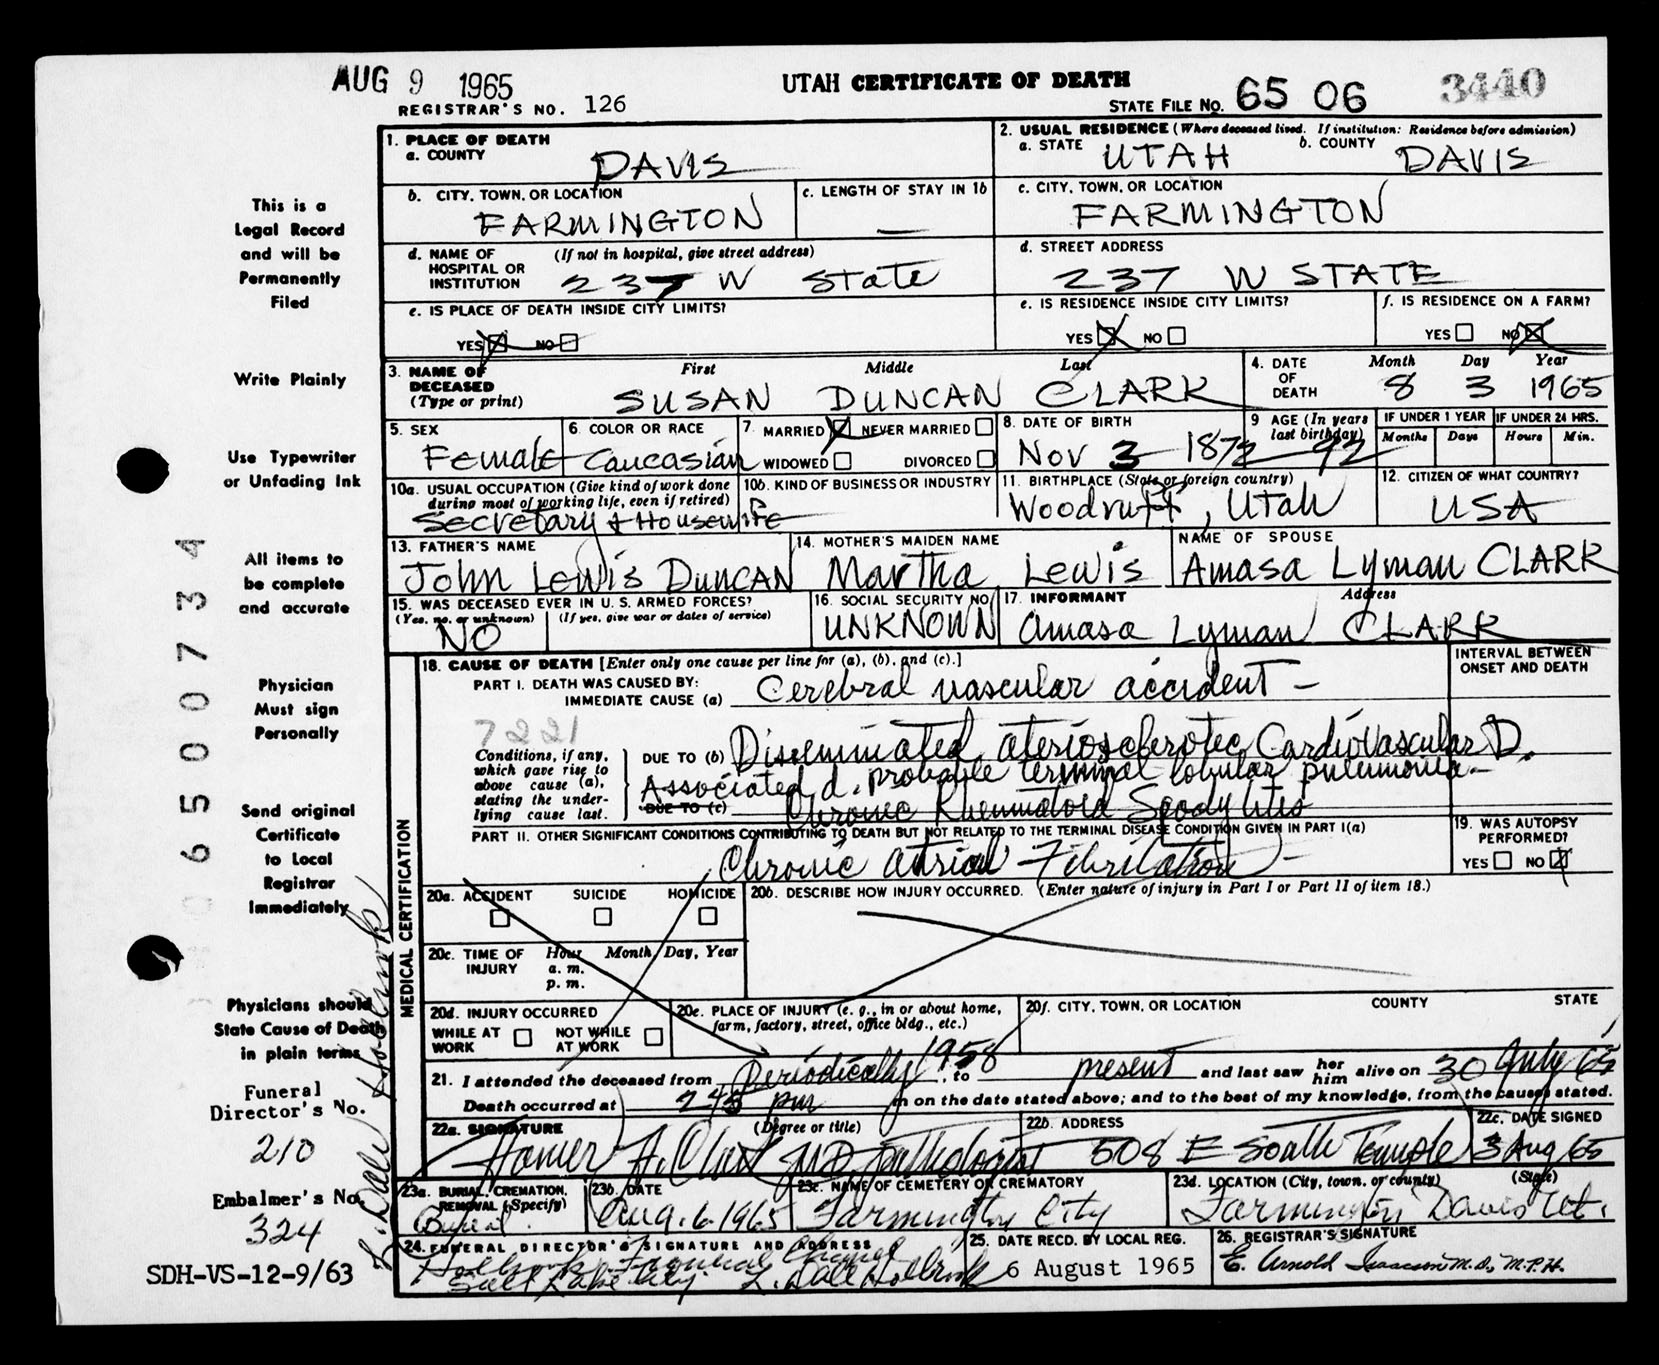 AUG 9 1965
UTAH CERTIFICATE OF DEATH
REGISTRAR'S NO. 126
STATE FILE NO. 65 06 3440
1. PLACE OF DEATH
a. COUNTY DAVIS
2. USUAL RESIDENCE (Where deceased lived. If institution: Residence before admission)
a. STATE UTAH b. COUNTY DAVIS
b. CITY, TOWN, OR LOCATION FARMINGTON
c. LENGTH OF STAY IN 1b —
c. CITY, TOWN, OR LOCATION FARMINGTON
d. NAME OF HOSPITAL OR INSTITUTION (If not in hospital, give street address) 237 W State
d. STREET ADDRESS 237 W STATE
e. IS PLACE OF DEATH INSIDE CITY LIMITS?
YES NO
e. IS RESIDENCE INSIDE CITY LIMITS?
YES NO
f. IS RESIDENCE ON A FARM?
YES NO
3. NAME OF DECEASED (Type or print)
First Middle Last
SUSAN DUNCAN CLARK
4. DATE OF DEATH
Month Day Year
8 3 1965
5. SEX Female
6. COLOR OR RACE Caucasian
7. MARRIED NEVER MARRIED
WIDOWED DIVORCED
8. DATE OF BIRTH
Nov 3 1872
9 AGE (In years last birthday) 92
IF UNDER 1 YEAR Months Days
IF UNDER 24 HRS. Hours Min.
10a. USUAL OCCUPATION (Give kind of work done during most of working life, even if retired)
Secretary & Housewife
10b. KIND OF BUSINESS OR INDUSTRY
11. BIRTHPLACE (State or foreign country)
Woodruff, Utah
12. CITIZEN OF WHAT COUNTRY?
USA
13. FATHER'S NAME
John Lewis Duncan
14. MOTHER'S MAIDEN NAME
Martha Lewis
NAME OF SPOUSE
Amasa Lyman CLARK
15. WAS DECEASED EVER IN U. S. ARMED FORCES?
(Yes, no, or unknown) (If yes, give war or dates of service)
NO
16. SOCIAL SECURITY NO.
UNKNOWN
17. INFORMANT Address
Amasa Lyman CLARK
18. CAUSE OF DEATH [Enter only one cause per line for (a), (b), and (c).]
INTERVAL BETWEEN ONSET AND DEATH
PART I. DEATH WAS CAUSED BY:
IMMEDIATE CAUSE (a) Cerebral vascular accident —
7221
Conditions, if any, which gave rise to above cause (a), stating the underlying cause last.
DUE TO (b) Disseminated ateriosclerotic Cardiovascular D.
Associated d. probable terminal lobular pneumonia —
DUE TO (c) Chronic Rheumatoid
PART II. OTHER SIGNIFICANT CONDITIONS CONTRIBUTING TO DEATH BUT NOT RELATED TO THE TERMINAL DISEASE CONDITION GIVEN IN PART I(a)
Chronic atrial Fibrilation —
19. WAS AUTOPSY PERFORMED?
YES NO
MEDICAL CERTIFICATION
20a. ACCIDENT SUICIDE HOMICIDE
20b. DESCRIBE HOW INJURY OCCURRED. (Enter nature of injury in Part I or Part II of item 18.)
20c. TIME OF INJURY Hour Month, Day, Year
a. m.
p. m.
20d. INJURY OCCURRED
WHILE AT WORK NOT WHILE AT WORK
20e. PLACE OF INJURY (e. g., in or about home, farm, factory, street, office bldg., etc.)
20f. CITY, TOWN, OR LOCATION COUNTY STATE
21. I attended the deceased from Periodically 1958, to present and last saw her him alive on 30 July 65
Death occurred at 245 pm m on the date stated above; and to the best of my knowledge, from the causes stated.
22a. SIGNATURE (Degree or title)
Homer
22b. ADDRESS
508 E South Temple
22c. DATE SIGNED
3 Aug 65
23a. BURIAL, CREMATION, REMOVAL (Specify)
Burial
23b. DATE
Aug. 6, 1965
23c. NAME OF CEMETERY OR CREMATORY
Farmington City
23d. LOCATION (City, town, or county) (State)
Farmington Davis Ut.
24. FUNERAL DIRECTOR'S SIGNATURE AND ADDRESS
Holbrook Funeral Chapel
Salt Lake City. L. Dale Holbrook
25. DATE RECD. BY LOCAL REG.
6 August 1965
26. REGISTRAR'S SIGNATURE
E. Arnold Isaacson M.D., M.P.H.
This is a
Legal Record
and will be
Permanently
Filed
Write Plainly
Use Typewriter
or Unfading Ink
All items to
be complete
and accurate
Physician
Must sign
Personally
Send original
Certificate
to Local
Registrar
Immediately
Physicians should
State Cause of Death
in plain terms
Funeral
Director's No.
210
Embalmer's No.
324
SDH-VS-12-9/63
L. Dale Holbrook
06500734